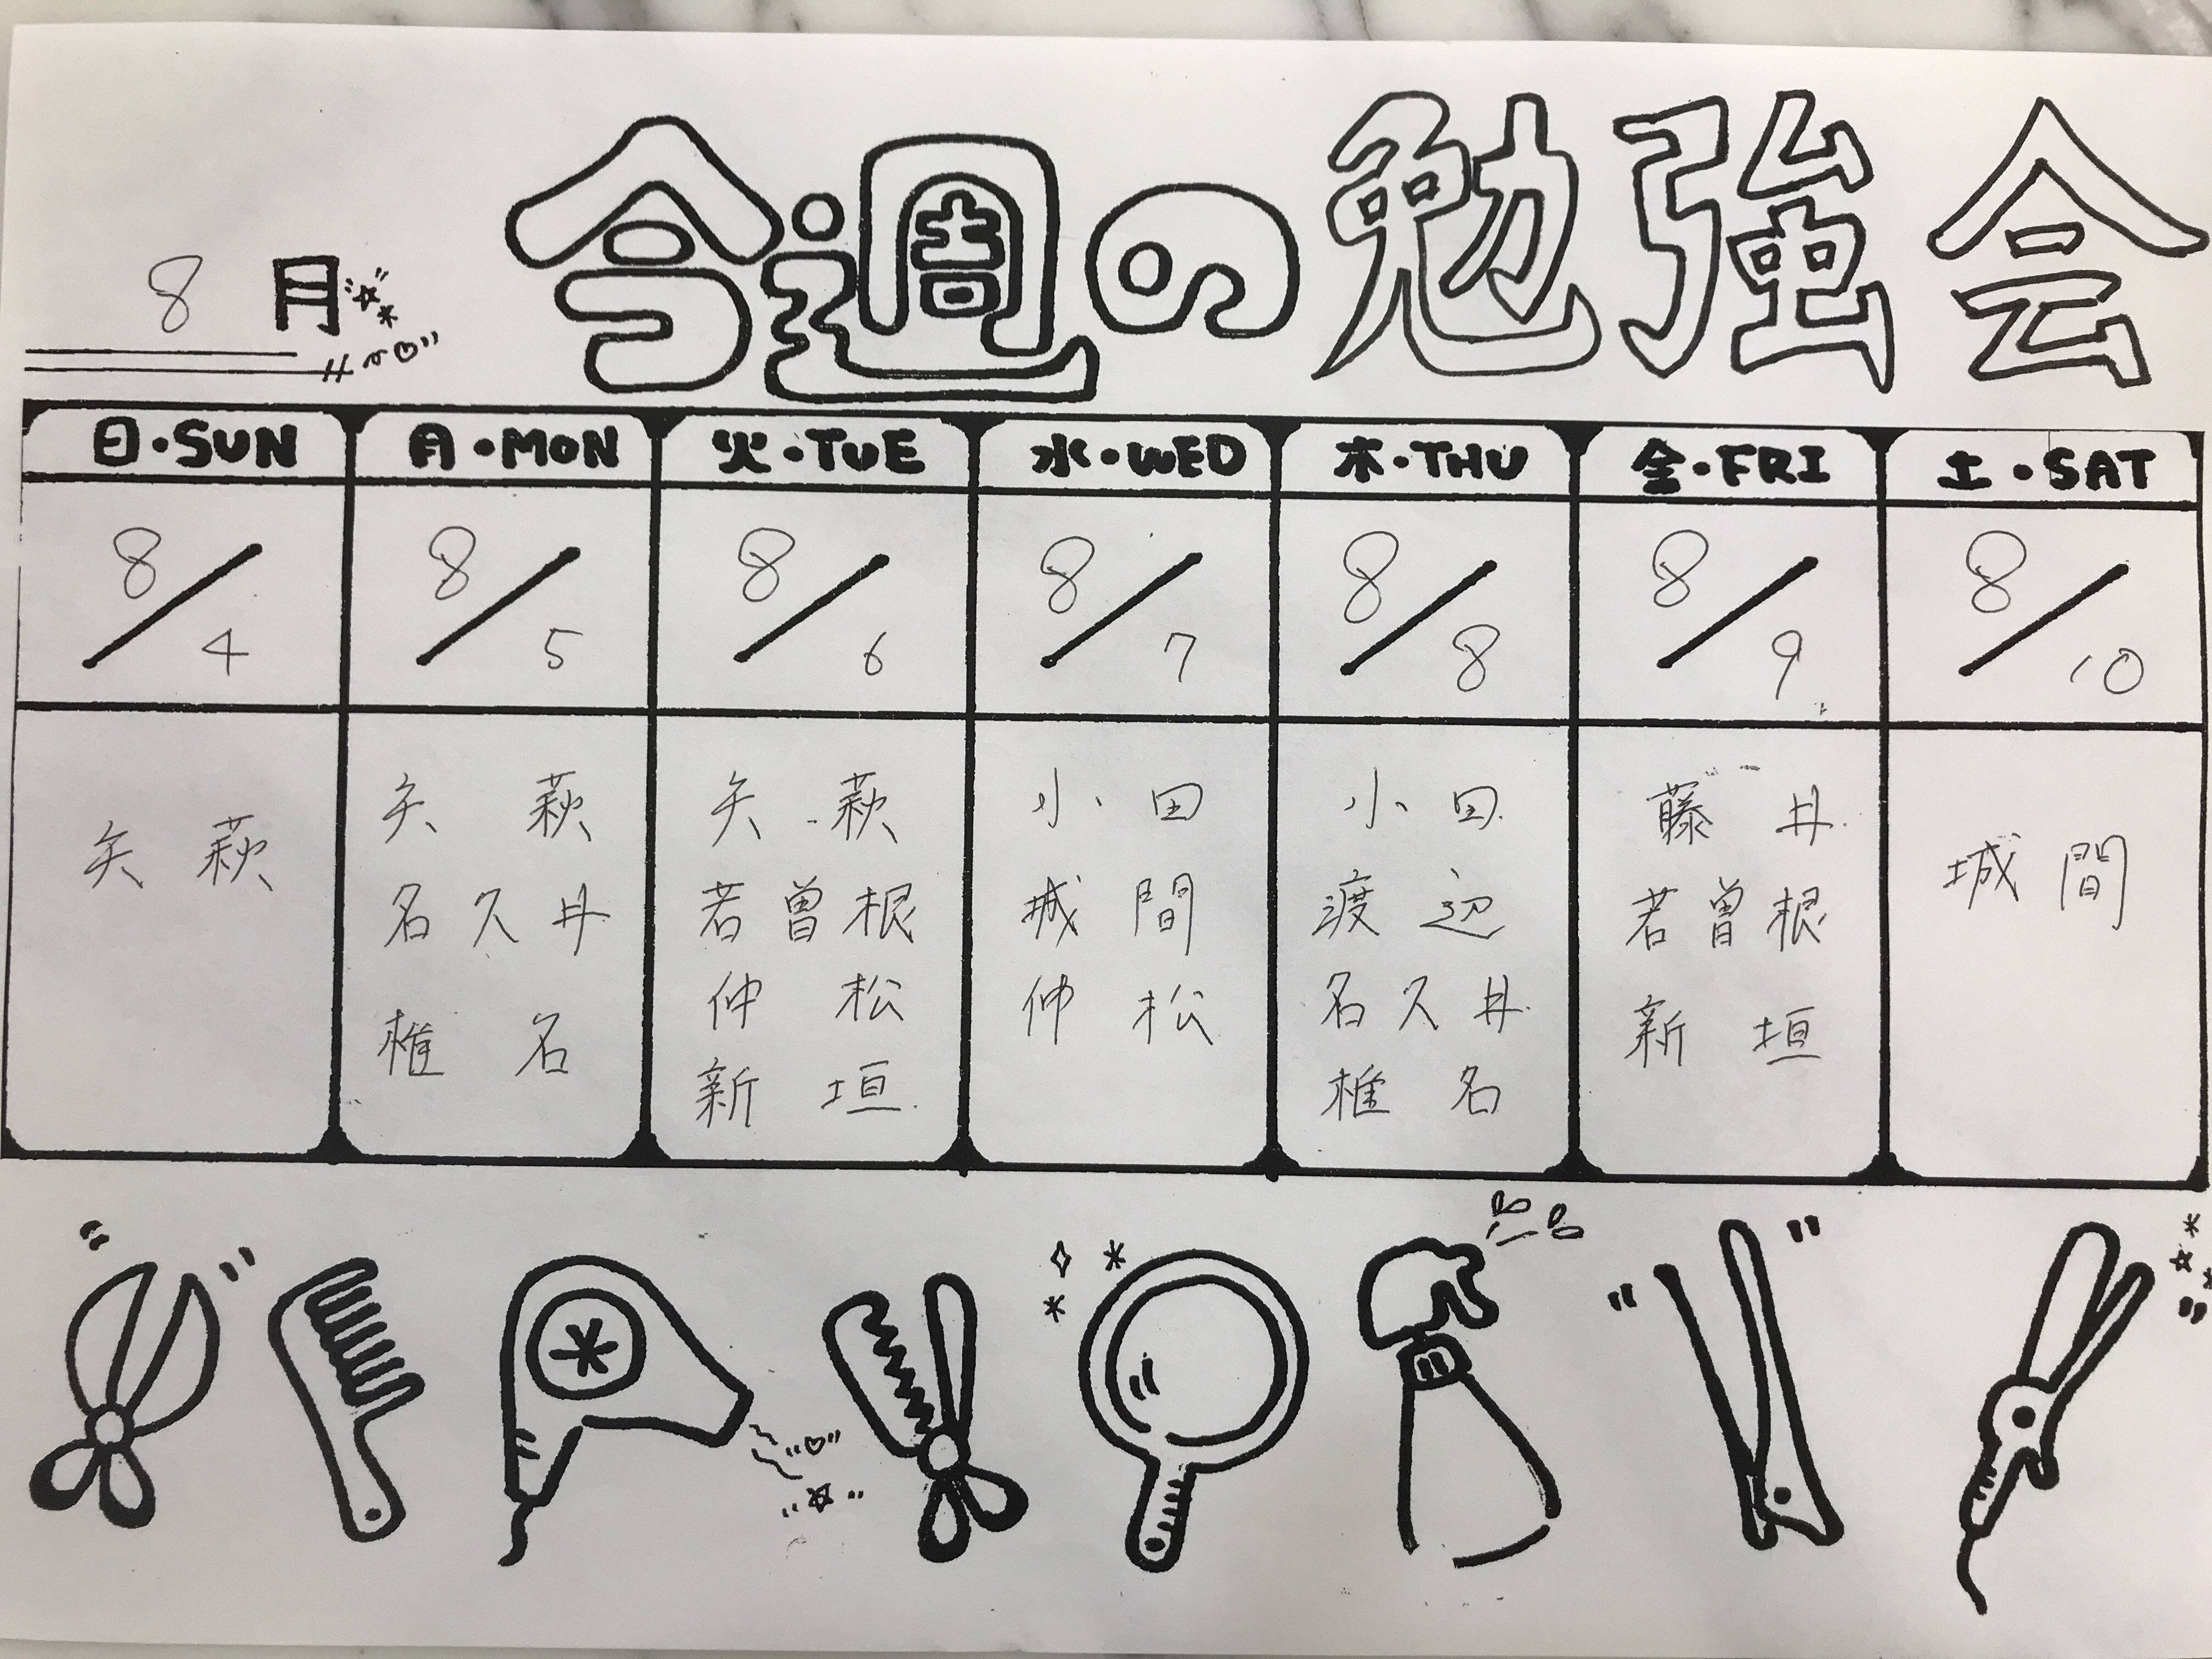 8月
今週の勉強会
日・SUN 月・MON 火・TUE 水・WED 木・THU 金・FRI 土・SAT
8/4 8/5 8/6 8/7 8/8 8/9 8/10
矢萩
矢萩
名久井
椎名
矢萩
若曽根
仲松
新垣
小田
城間
仲松
小田
渡辺
名久井
椎名
藤井
若曽根
新垣
城間